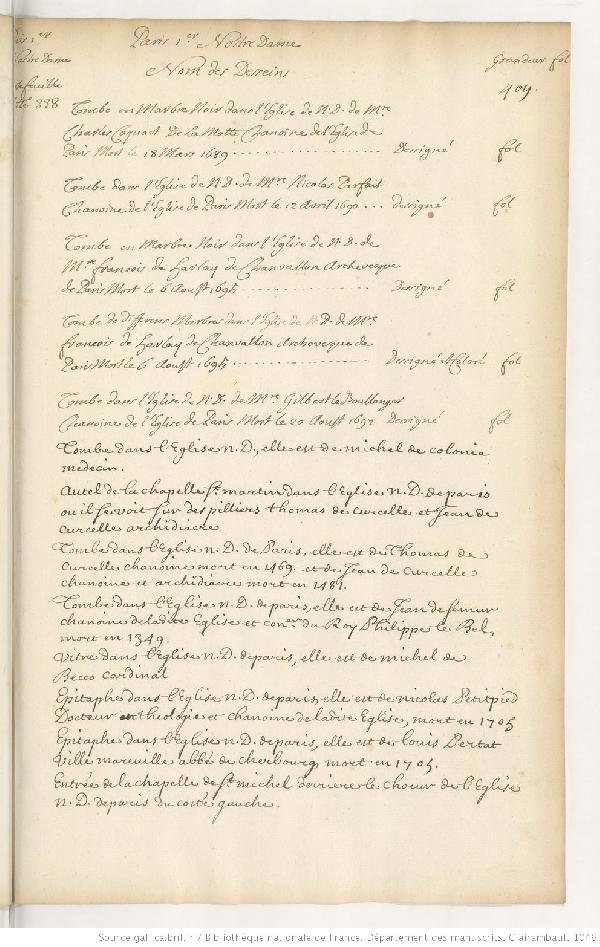 Paris 1.er Nostre Dame
Nom des Desseins
Grandeur fol
409.
338
Tombe en Marbre Noir dans l'Eglise de N.D. de Mre
Charles Coquart De la Motte Chanoine de l'Eglise de
Paris Mort le 18 Mars 1689 Dessigné fol
Tombe dans l'Eglise de N.D. de Mre Nicolas Parfait
Chanoine de l'Eglise de Paris Mort le 12 Avril 1690 ... dessigné fol
Tombe en Marbre Noir dans l'Eglise de N.D. de
Mre francois de harlay de Chanvallon Archevesque
de Paris Mort le 6 Aoust 1695 Dessigné fol
Tombe de differens Marbres dans l'Eglise de N.D. de Mre
francois de harlay de Chanvallon Archevesque de
Paris Mort le 6 Aoust 1695 Dessigné & Coloré fol
Tombe dans l'Eglise de N.D. de Mre Gilbert le Boullanger
Chanoine de l'Eglise de Paris Mort le 20 Aoust 1692 Dessigné fol
Tombe dans l'Eglise n.D., elle est de michel de colonia
medecin.
Autel de la chapelle St. martin dans l'Eglise n.D. de paris
ou il se voit sur des pilliers thomas de curcelle et Jean de
curcelle archidiacre
Tombe dans l'Eglise n.D. de Paris, elle est de Thomas de
curcelle chanoine mort en 1469. et de Jean de curcelle
chanoine et archidiacre mort en 1481.
Tombe dans l'Eglise n.D. de paris, elle est de Jean de semur
chanoine de ladite Eglise et coner du Roy Philippe le Bel,
mort en 1349.
Vitre dans l'Eglise n.D. de paris, elle est de michel de
Becco cardinal
Epitaphe dans l'Eglise n.D. de paris, elle est de nicolas Petitpied
Docteur en theologie et chanoine de ladite Eglise, mort en 1705
Epitaphe dans l'Eglise n.D. de paris, elle est de louis Bertat
Ville mareuille abbé de cherbourg mort en 1705.
Entrée de la chapelle de St. michel darriere le choeur de l'Eglise
n.D. de paris du costé gauche.
Source gallica.bnf.fr / Bibliothèque nationale de France. Département des manuscrits. Clairambault 1046